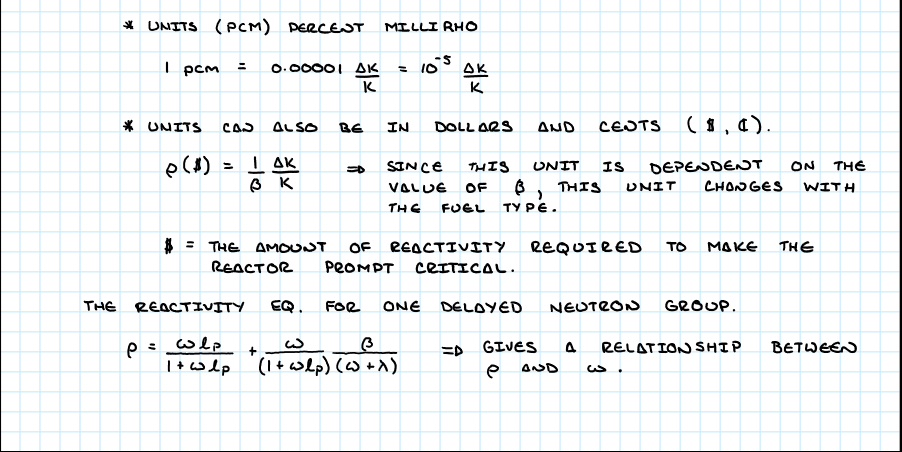 * UNITS (PCM) PERCENT MILLIRHO
1 pcm = 0.00001 ΔK/K = 10^-5 ΔK/K
* UNITS CAN ALSO BE IN DOLLARS AND CENTS ($, ¢).
ρ($) = 1/β ΔK/K ⇒ SINCE THIS UNIT IS DEPENDENT ON THE
VALUE OF β, THIS UNIT CHANGES WITH
THE FUEL TYPE.
$ = THE AMOUNT OF REACTIVITY REQUIRED TO MAKE THE
REACTOR PROMPT CRITICAL.
THE REACTIVITY EQ. FOR ONE DELAYED NEUTRON GROUP.
ρ = ωlp/(1+ωlp) + ω/(1+ωlp) β/(ω+λ) ⇒ GIVES A RELATIONSHIP BETWEEN
ρ AND ω.